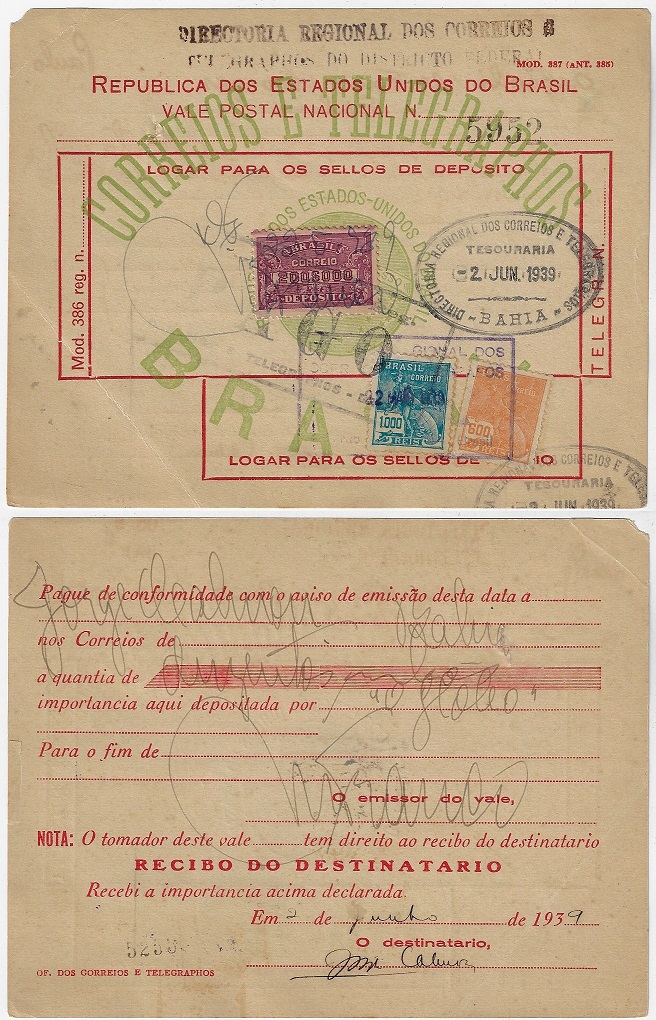 DIRECTORIA REGIONAL DOS CORREIOS E
TELEGRAPHOS DO DISTRICTO FEDERAL
MOD. 387 (ANT. 385)
REPUBLICA DOS ESTADOS UNIDOS DO BRASIL
VALE POSTAL NACIONAL N.
5952
CORREIOS E TELEGRAPHOS
LOGAR PARA OS SELLOS DE DEPOSITO
DOS ESTADOS-UNIDOS DO
Mod. 386 reg. n.
TELEGR. N.
BRASIL
CORREIO
200$000
DEPOSITO
DIRECTORIA REGIONAL DOS CORREIOS E TELEGRAPHOS
TESOURARIA
2 JUN. 1939
BAHIA
PAGO
GIONAL DOS
BRASIL
CORREIO
1000
REIS
600
BRA
LOGAR PARA OS SELLOS DE
IA REGIONAL DOS CORREIOS E TELEG
TESOURARIA
2 JUN. 1939
Pague de conformidade com o aviso de emissão desta data a
Jorge Calmon
nos Correios de Bahia
a quantia de duzentos mil
importancia aqui depositada por "O Globo"
Para o fim de
O emissor do vale,
NOTA: O tomador deste vale tem direito ao recibo do destinatario
RECIBO DO DESTINATARIO
Recebi a importancia acima declarada.
Em 2 de junho de 1939
O destinatario,
Jorge Calmon
OF. DOS CORREIOS E TELEGRAPHOS